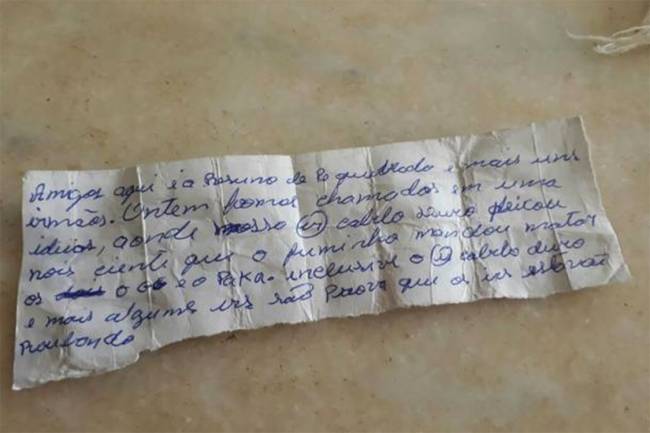 Amigos aqui é a Resumo da Pé quebrado e mais uns
irmãos. Ontem fomos chamados em uma
ideias, aonde nosso ir cabelo duro deixou
nois ciente que o fuminho mandou matar
os o GG e o Paka. inclusive o ir cabelo duro
e mais alguns irs são prova que os irs estavão
Roubando